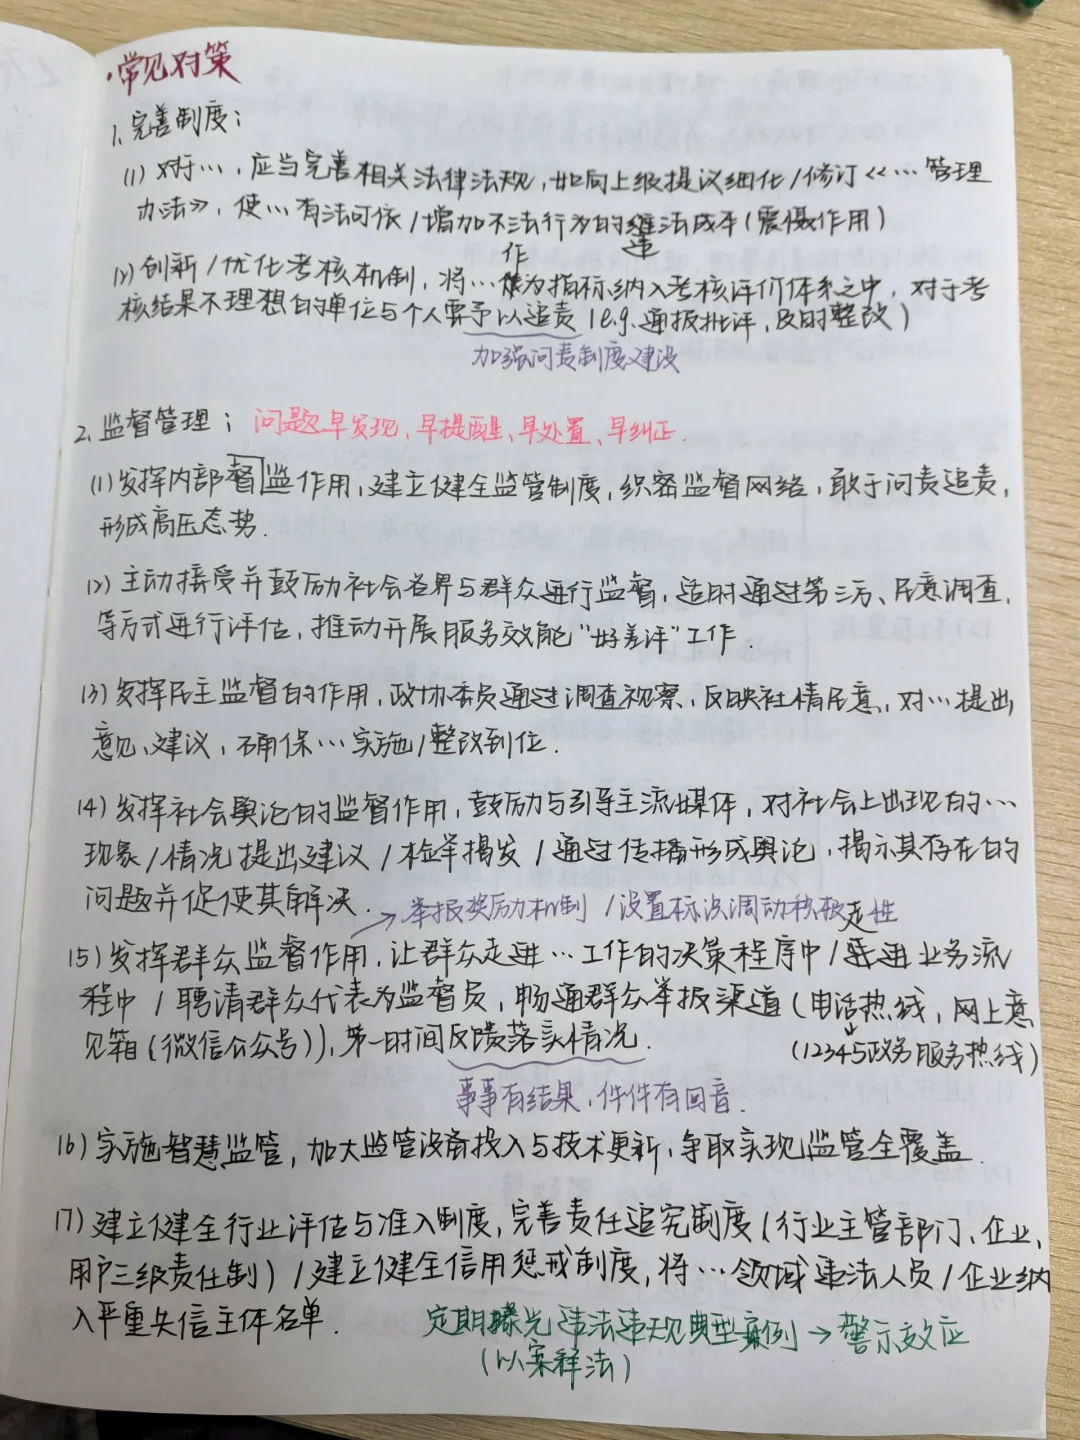 ·常见对策
1、完善制度：
(1) 对于…，应当完善相关法律法规，如向上级提议细化/修订《…管理
办法》，使…有法可依/增加不法行为的违法成本(震慑作用)
(2) 创新/优化考核机制，将…作为指标纳入考核评价体系之中，对于考
核结果不理想的单位与个人要予以追责（e.g.通报批评，及时整改）
加强问责制度建设
2、监督管理：问题早发现、早提醒、早处置、早纠正.
(1) 发挥内部督监作用，建立健全监管制度，织密监督网络，敢于问责追责，
形成高压态势.
(2) 主动接受并鼓励社会各界与群众进行监督，适时通过第三方、民意调查，
等方式进行评估，推动开展服务效能“好差评”工作.
(3) 发挥民主监督的作用，政协委员通过调查视察，反映社情民意，对…提出
意见、建议，确保…实施/整改到位.
(4) 发挥社会舆论的监督作用，鼓励与引导主流媒体，对社会上出现的…
现象/情况提出建议/检举揭发/通过传播形成舆论，揭示其存在的
问题并促使其解决.
→举报奖励机制/设置标决调动积极性
(5) 发挥群众监督作用，让群众走进…工作的决策程序中/走进业务流
程中/聘请群众代表为监督员，畅通群众举报渠道(电话热线，网上意
见箱(微信公众号))，第一时间反馈落实情况.
(12345政务服务热线)
事事有结果，件件有回音.
(6) 实施智慧监管，加大监管设备投入与技术更新，争取实现监管全覆盖.
(7) 建立健全行业评估与准入制度，完善责任追究制度(行业主管部门、企业、
用户三级责任制)/建立健全信用惩戒制度，将…领域违法人员/企业纳
入严重失信主体名单.
定期曝光违法违规典型案例→警示效应
(以案释法)